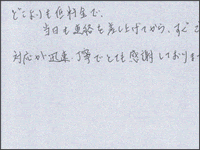 どこよりも低料金で、
当日も連絡を差し上げてから、すぐ
対応が迅速、丁寧でとても感謝しておりま